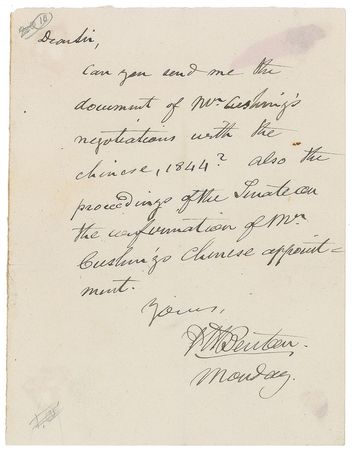 Dear Sir,
Can you send me the
document of Mr Cushing's
negotiations with the
Chinese, 1844? also the
proceedings of the Senate on
the confirmation of Mr
Cushings Chinese appoint=
ment.
Yours,
Benton.
Monday.